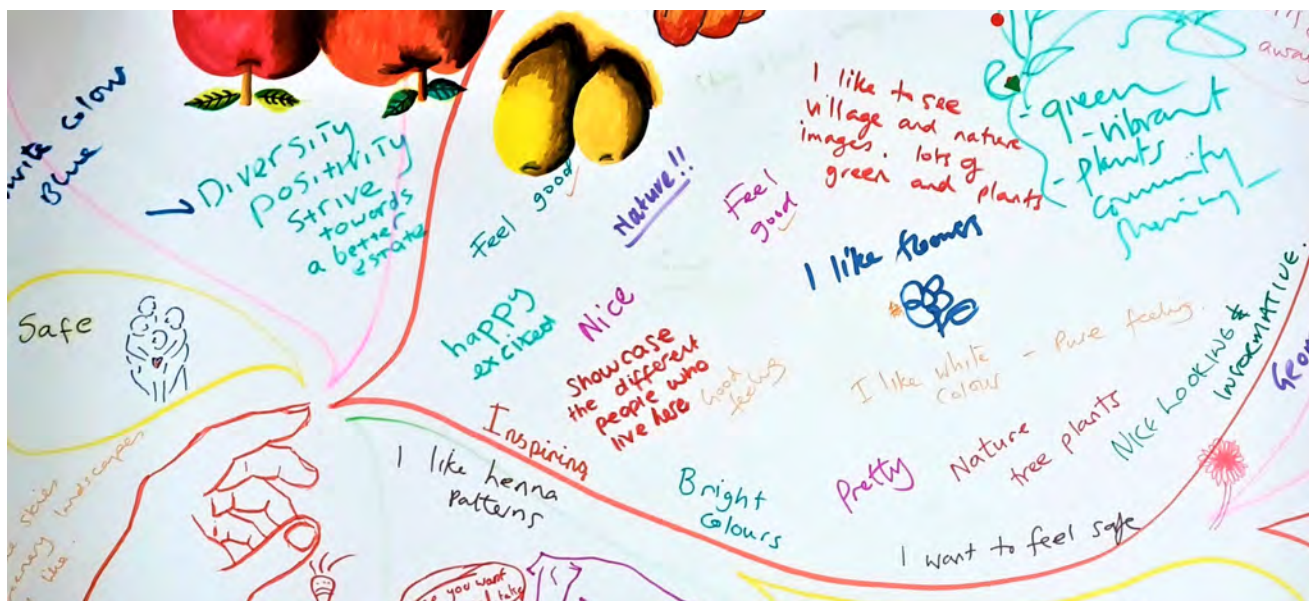 Colour
Blue
DIVERSITY
POSITIVITY
STRIVE
towards
a better
estate
Feel good
Nature!!
Feel
good
I like to see
village and nature
images. lots of
green and plants
- green
- vibrant
- plants
community
away
I like flowers
Safe
happy
excited
Nice
Showcase
the different
people who
live here
Good
feeling
I like white
Colour
- Pure feeling.
NICE LOOKING &
INFORMATIVE.
Inspiring
I like henna
Patterns
Bright
Colours
Pretty
Nature
tree plants
I want to feel safe
skies
landscapes
like.
you want
take